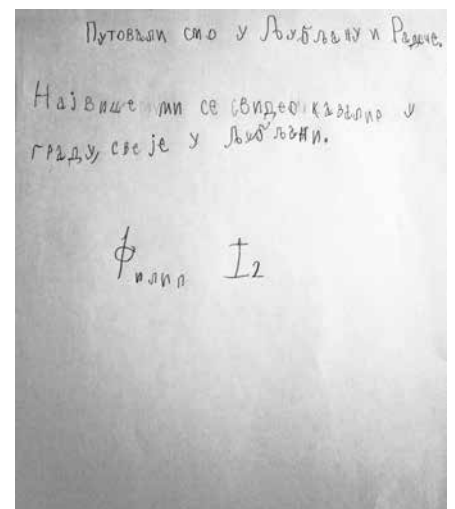 Путовали смо у Љубљану и Радече.
Највише ми се свидео казалиш у
граду, све је у Љубљани.
Филип I2